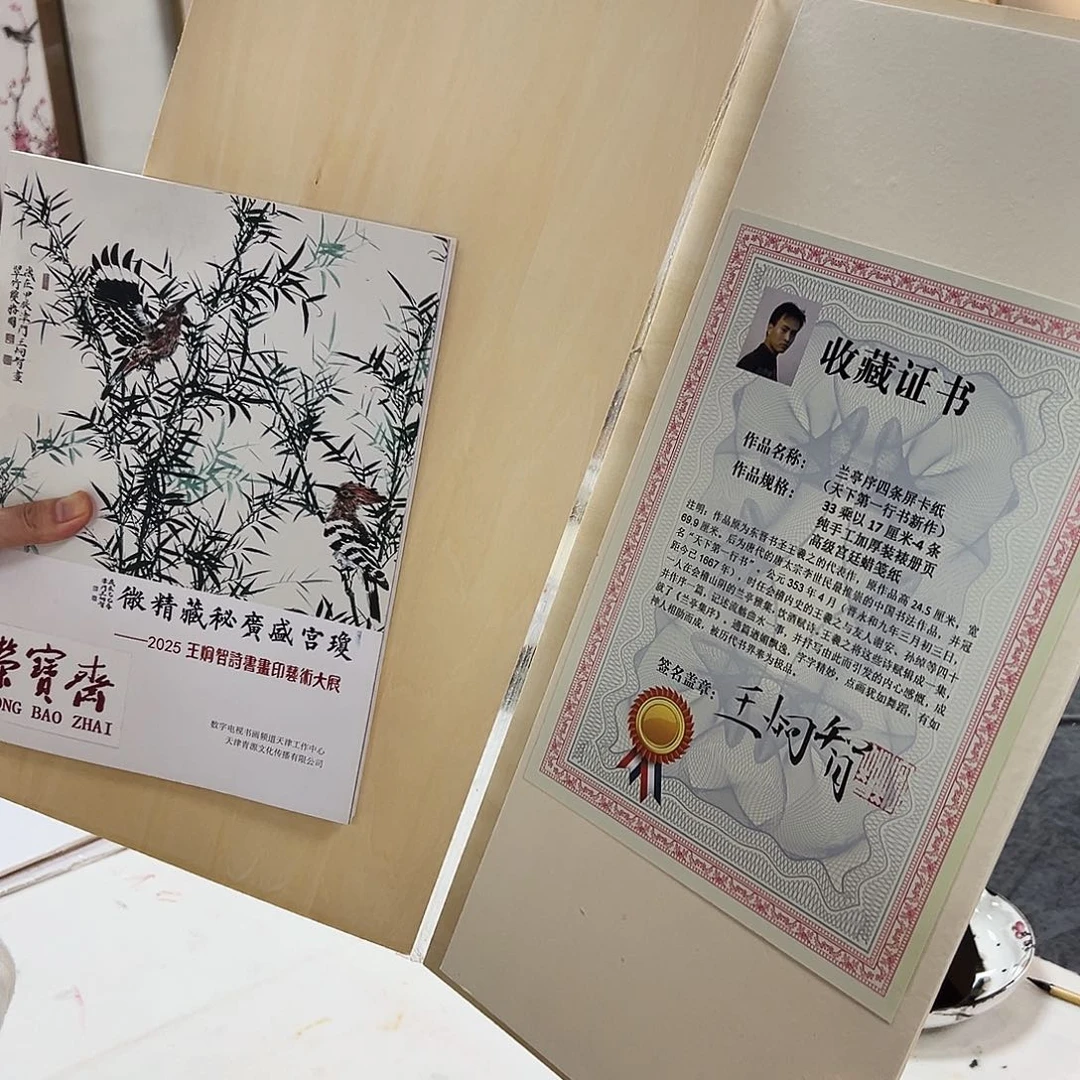 微精藏秘廣盛宮瓊
——2025 王炯智詩書畫印藝術大展
榮寶齋
ONG BAO ZHAI
数字电视书画频道天津工作中心
天津青源文化传播有限公司
收藏证书
作品名称：兰亭序四条屏卡纸
（天下第一行书新作）
作品规格：33 乘以 17 厘米-4 条
纯手工加厚装裱册页
高级宫廷蜡笺纸
注明：作品原为东晋书圣王羲之的代表作，原作品高 24.5 厘米，宽
69.9 厘米。后为唐代的唐太宗李世民最推崇的中国书法作品，并冠
名“天下第一行书”。公元 353 年 4 月（晋永和九年三月初三日，
距今已 1667 年），时任会稽内史的王羲之与友人谢安、孙绰等四十
一人在会稽山阴的兰亭雅集，饮酒赋诗。王羲之将这些诗赋辑成一集，
并作序一篇，记述流觞曲水一事，并抒写由此而引发的内心感慨，成
就了《兰亭集序》。通篇遒媚飘逸，字字精妙，点画犹如舞蹈，有如
神人相助而成，被历代书界奉为极品。
签名盖章：王炯智